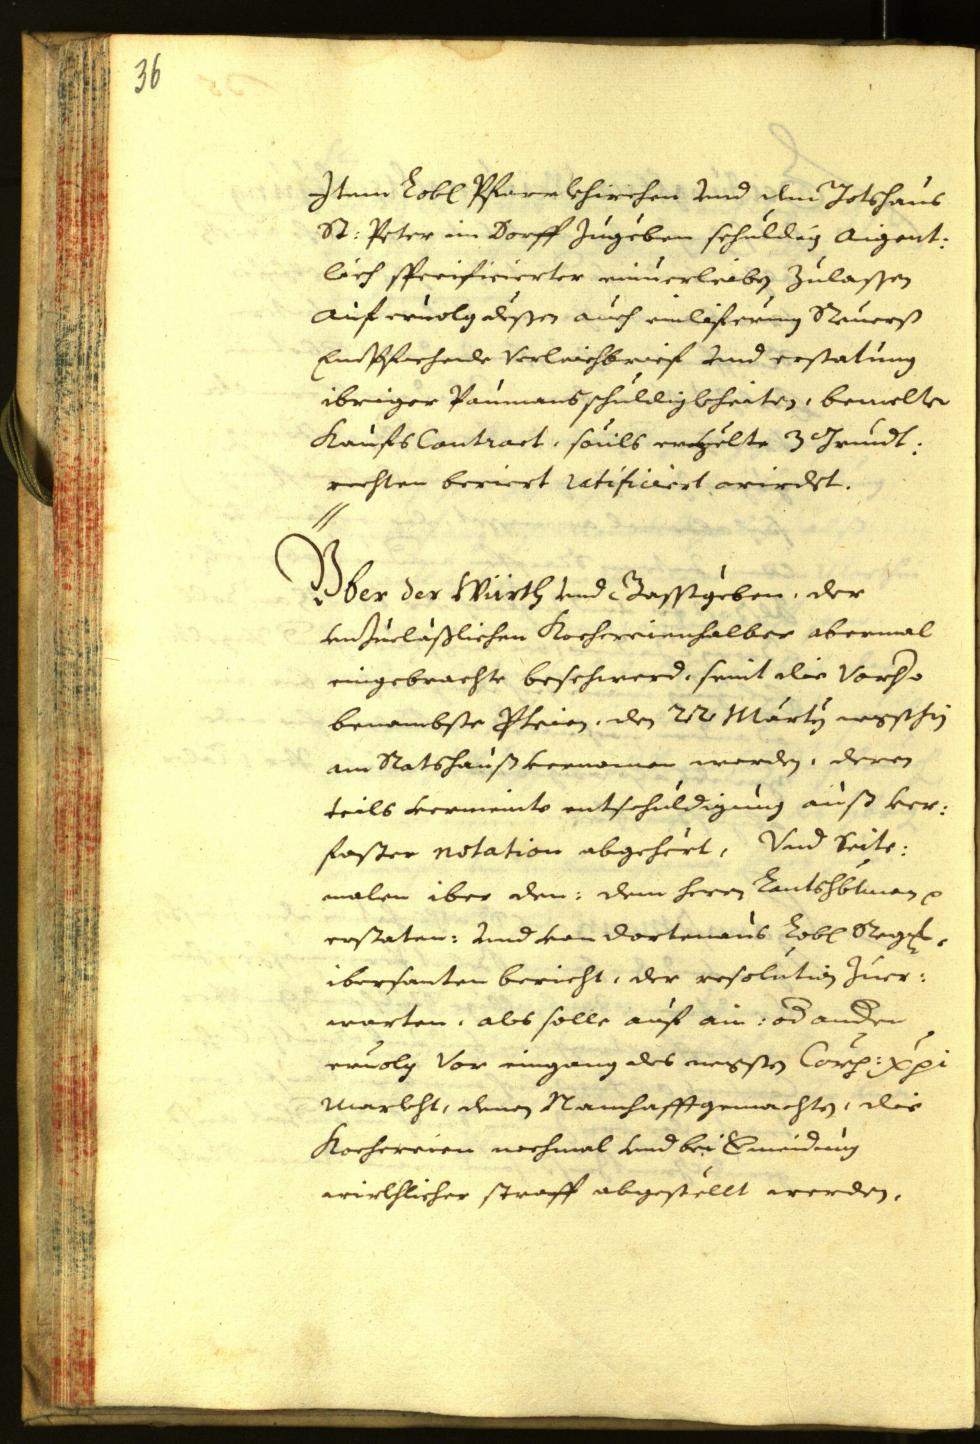 36
Item Lobl Pfarrkhirchen und dem Gotshaus
St: Peter im Dorff zugeben schuldig aigent:
lich specificierter einuerleiben Zulassen
Auf eruolg dessen auch einliferung Reuerss
Verleichbrief und erstatung
ibriger Paumansschuldigkheiten, bemelter
Kaufs Contract, souils erzelte 3 Grundt:
rechten beriert ratificiert wirdet.
Yber der Würth und Gasstgeben, der
unZuelässlichen Kochereienhalber abermal
eingebrachte beschwerd, seint die Vorhero
benambste den 22 Marty negsthin
am Ratshauß vernomen worden, deren
teils vermeinte entschuldigung auß ver:
faster notation abgehört, Und Seite:
malen iber den: dem herrn Lantshbtman
erstaten: und von dortenaus Lobl Regl.
ibersanten bericht, der resolution Zuer:
warten, als solle auf ain: od andern
eruolg Vor eingang des negsten Corp: Xpi
Markht, denen Namhafftgemachten, die
Kochereien nochmal und bei Vermeidung
wirkhlicher straff abgestellt werden.